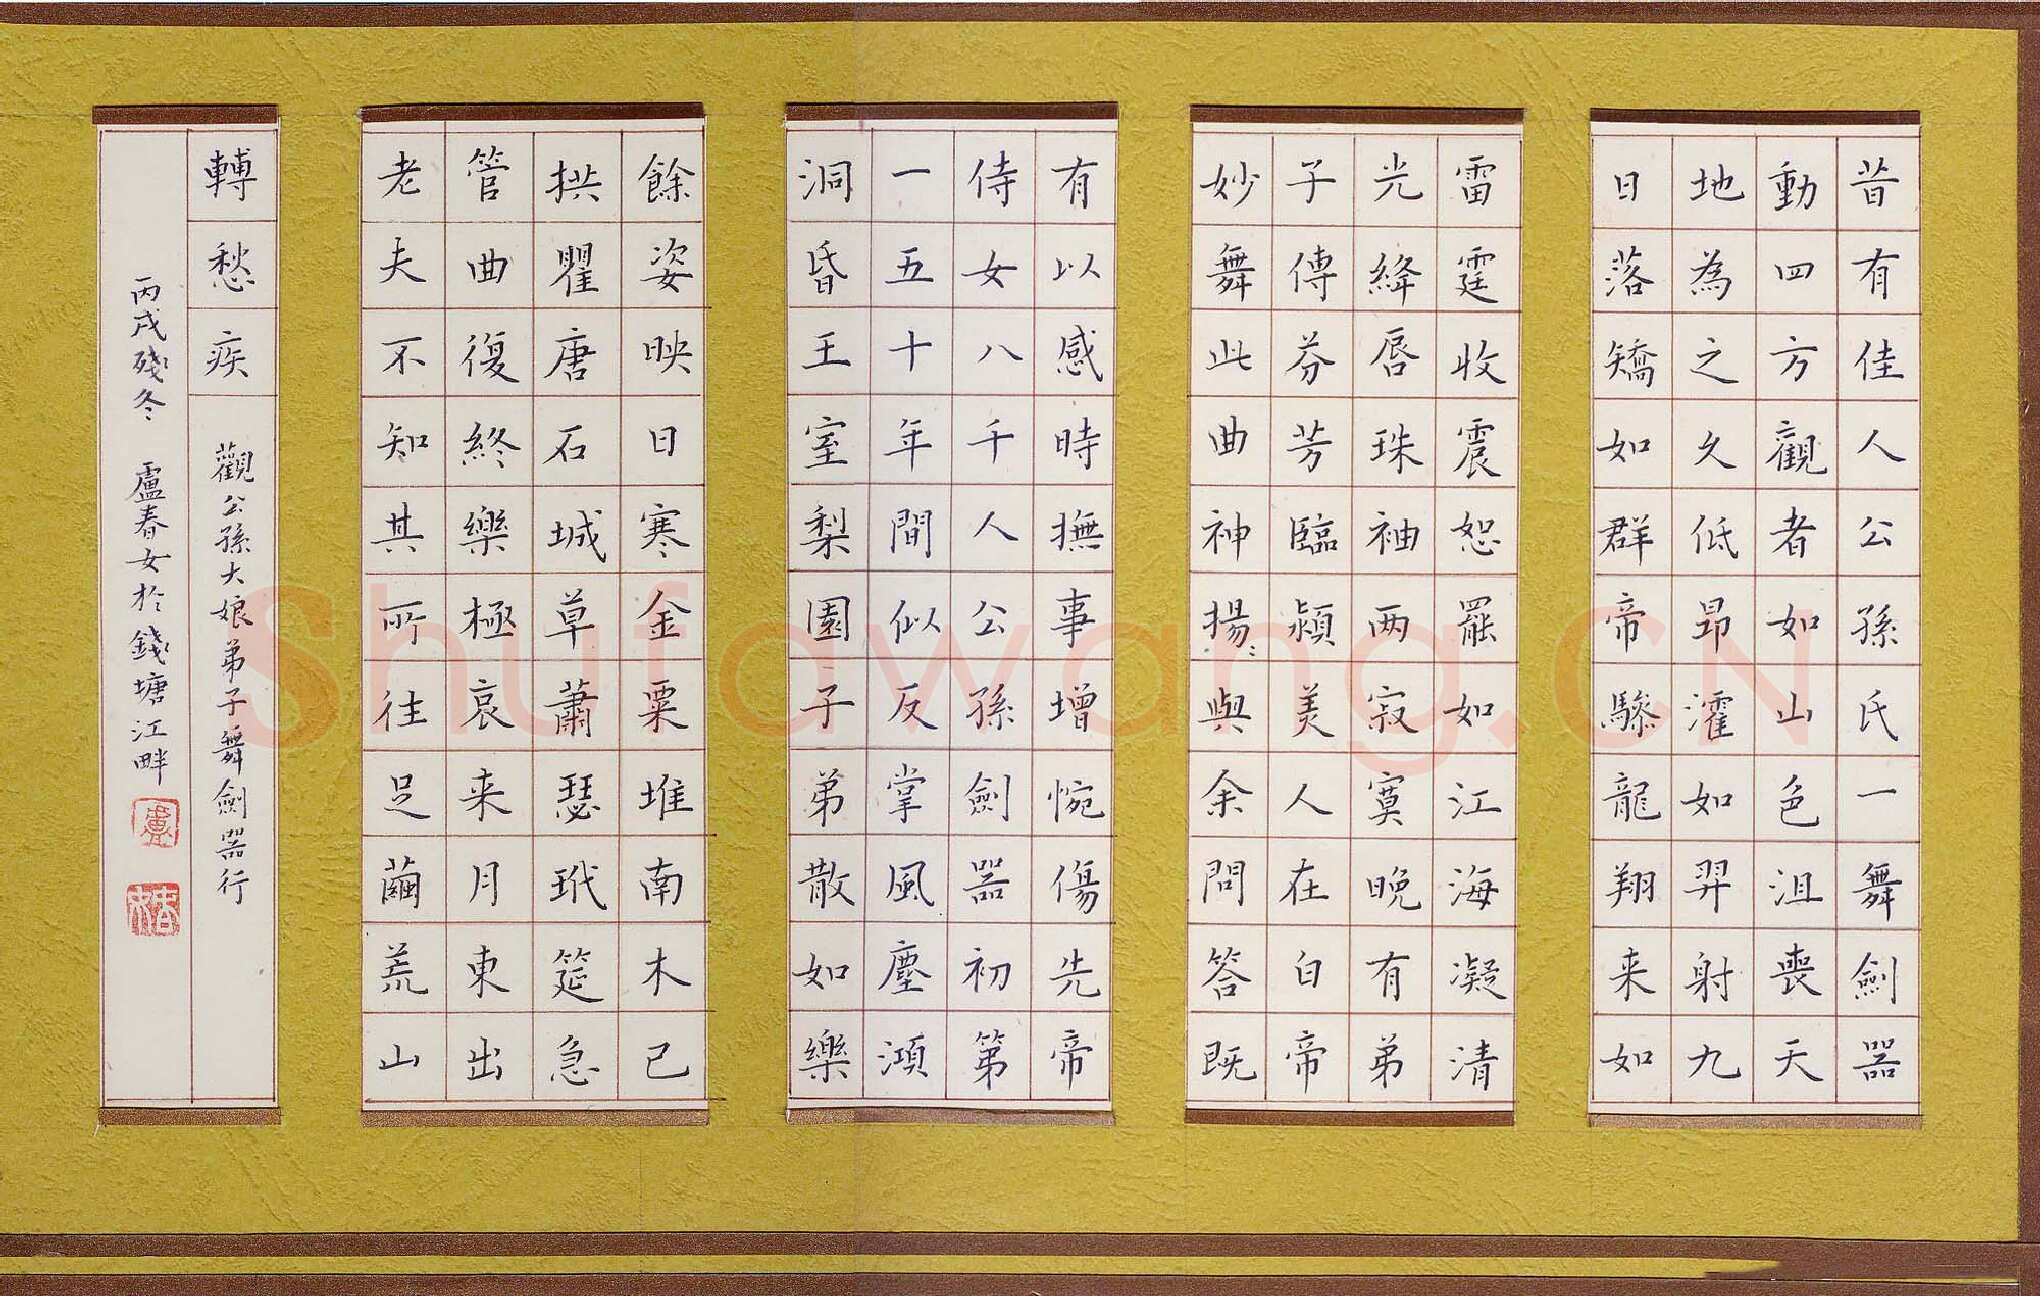 昔有佳人公孫氏一舞劍器
動四方觀者如山色沮喪天
地為之久低昂㸌如羿射九
日落矯如群帝驂龍翔来如
雷霆收震恕罷如江海凝清
光絳唇珠袖两寂寞晚有弟
子傳芬芳臨潁美人在白帝
妙舞此曲神揚:與余問答既
有以感時撫事增惋傷先帝
侍女八千人公孫劍器初第
一五十年間似反掌風塵澒
洞昏王室梨園子弟散如樂
餘姿映日寒金粟堆南木已
拱瞿唐石城草蕭瑟玳筵急
管曲復終樂極哀来月東出
老夫不知其所往足繭荒山
轉愁疾 觀公孫大娘弟子舞劍器行
丙戌殘冬 盧春女於錢塘江畔
shufawang.CN